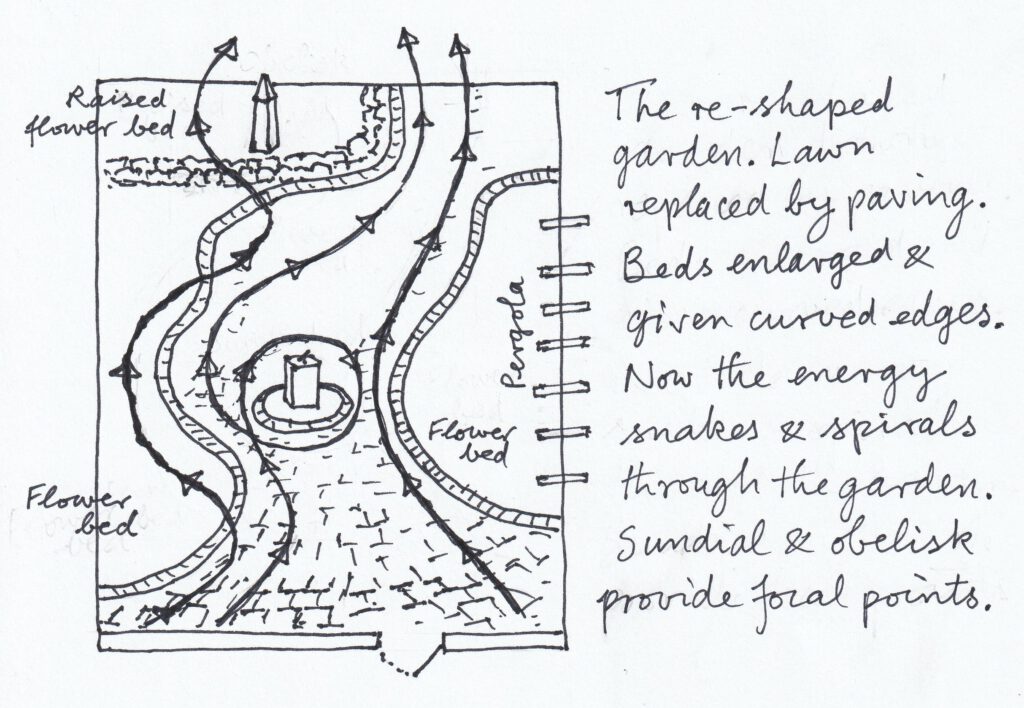 Raised
flower bed
Flower
bed
Flower
bed
Pergola
The re-shaped
garden. Lawn
replaced by paving.
Beds enlarged &
given curved edges.
Now the energy
snakes & spirals
through the garden.
Sundial & obelisk
provide focal points.